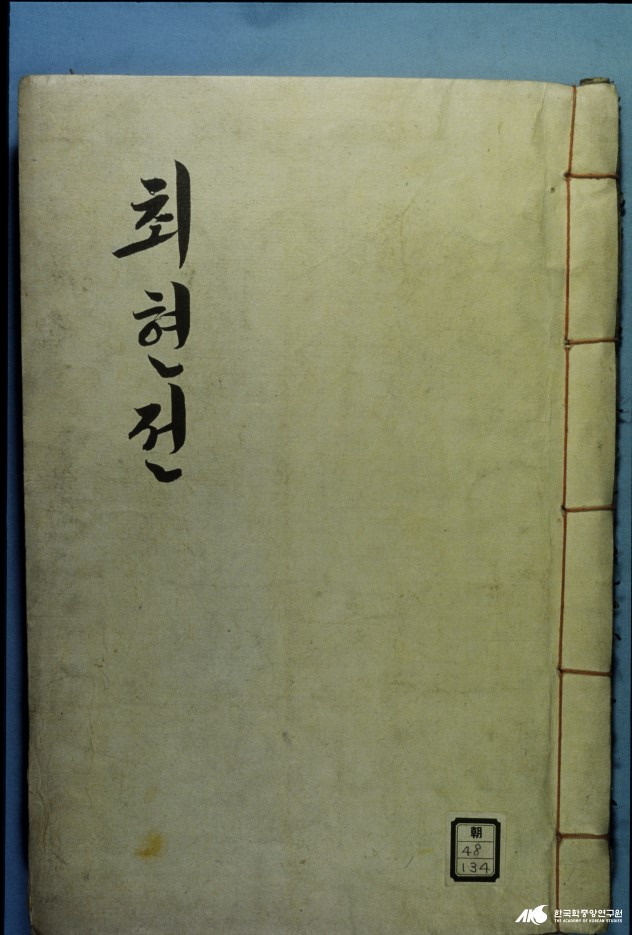 최현전
朝
48
134
AKS 한국학중앙연구원
THE ACADEMY OF KOREAN STUDIES